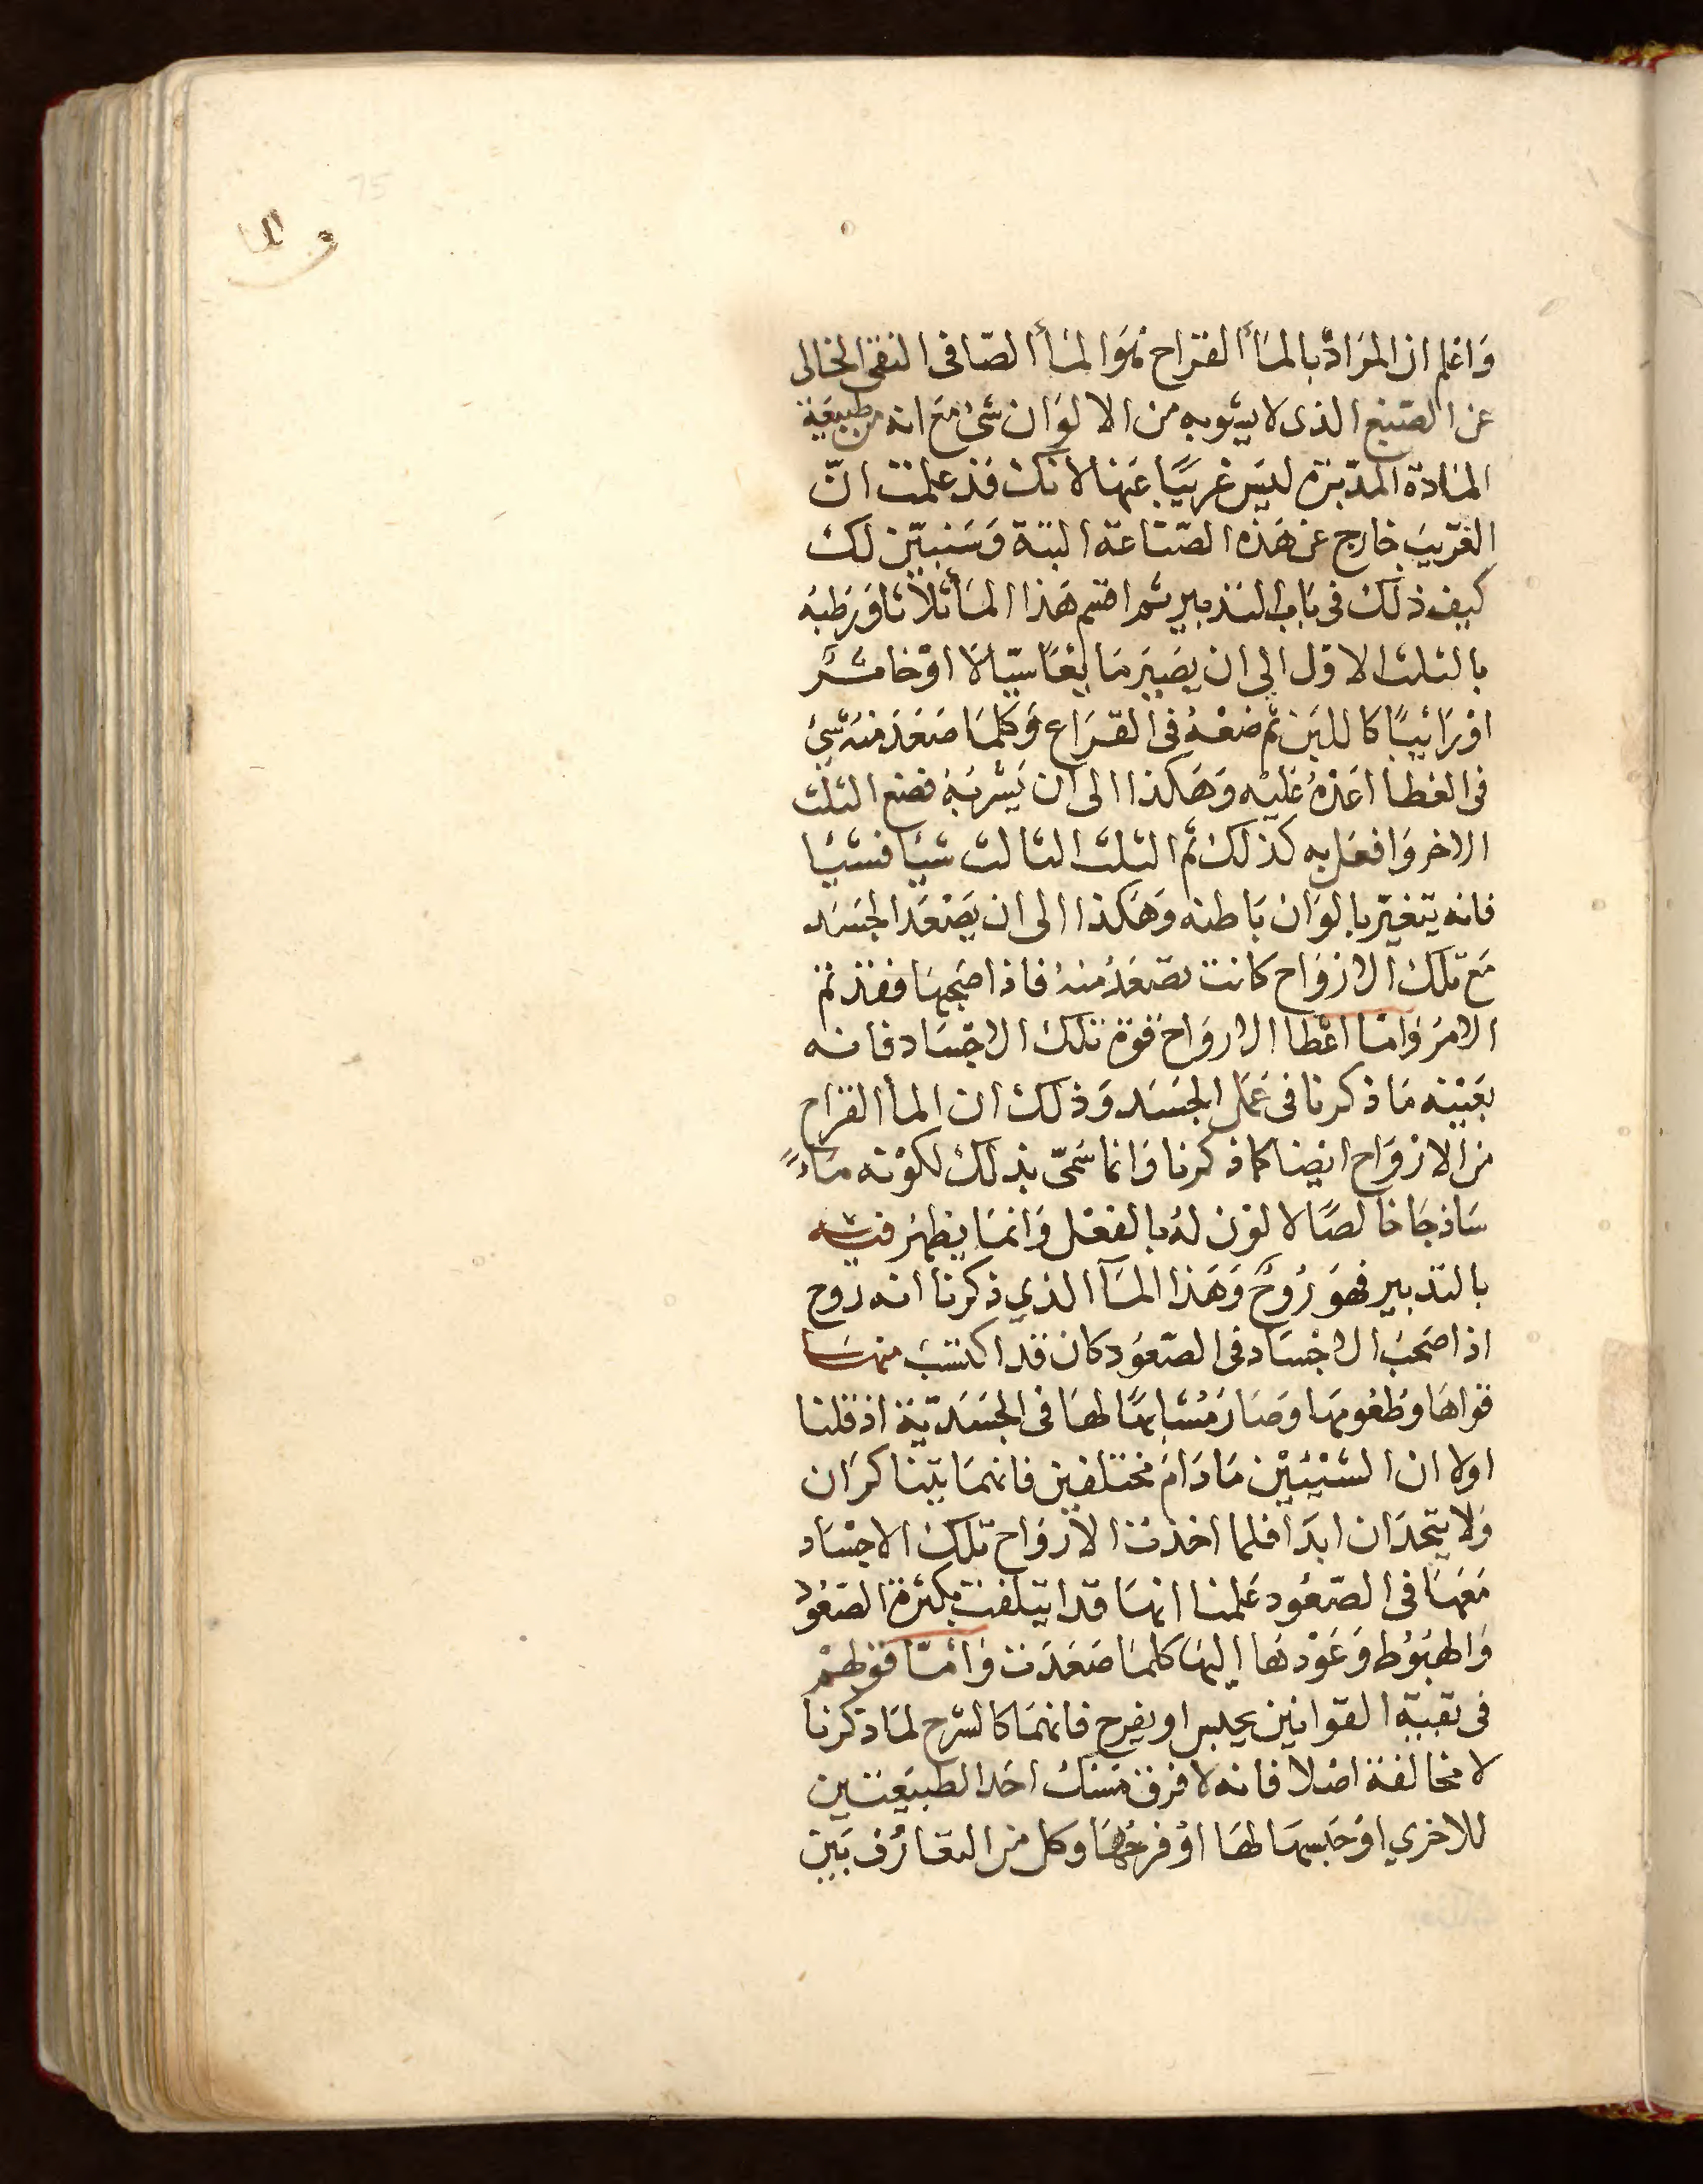 وَاعْلم ان المرَادْ بالمَاأ القراح هُوَ المَاأ الصَافى النقى الخالى
عن الصّبغ الذى لا يشوبه من الالوَان شىٔ مَع انه من طبيعَة
المَادة المدَبَرة ليسَ غريبًا عَنهَا لانك قد علمت انّ
الغَريبَ خارج عن هَذه الصّنَاعَة البتة وَسَنبيّن لك
كيف ذلك فى بَاب التدبير ثم اقسم هَذا المَا أثلاثا وَرَطبهُ
بالثلث الاوّل الى ان يصَير مَا يعًا سيّالا اوْخاثرً
اوْ رَائيبًا كاللبَن ثم ضعْهُ فى القرَاع وَكلمَا صَعَدَ منهُ شئ
فى الغطا اعَدْهُ عَليْه وَهَكذا الى ان يَشْربَهُ فضع الثلث
الاخر وَافعَل به كذلك ثم الثلث الثالث شئا فشئا
فانه يتغيّر بالوَان بَاطنه وَهَكذا الى ان يَصْعَدَ الجسَد
مَع تلك الارْوَاح كانت تصّعَدُ منهُ فاذا صَحبهَا فقد تم
الامرُ وَامّا اعْطا الارواح قوة تلك الاجسَاد فانه
بعَيْنه مَا ذكرنا فى عَمَل الجسَد وَذلك ان المأ القراح
من الارْوَاح ايضا كما ذكرنا وَانما سَمّىَ بذلك لكوْنه مَاءً
سَاذجًا خالصًا لا لوْن لهُ بالفعْل وَانمَا يظهرُ فيه
بالتدبير فهوَ رُوحٌ وَهَذا المَاأ الذي ذكرنا انه روح
اذا صَحبَ الاجْسَاد فى الصّعُود كان قد اكتسَبَ منهَا
قواهَا وَطعُومهَا وصَارَ مُشَابهًا لهَا فى الجسَديّة اذ قلنا
اولا ان الشيْئَيْن مَا دَامَ مختلفين فانهمَا يتناكرَان
وَلا يتحدَان ابدَا فلما اخذت الارْوَاح تلك الاجْسَاد
مَعَهَا فى الصّعُود عَلمنا انهَا قد ايتلفت بكثرة الصّعُود
وَالهبُوط وَعَوْدهَا اليهَا كلمَا صَعَدَت وَامّا قوْلهمْ
فى بقيّة القوانين يحبس او يفرح فانهمَا كالشرح لمَا ذكرنا
لا مخالفة اصْلا فانه لا فرق مَسْك احَد الطبيعَتَين
للاخري اوْ حَبسهَا لهَا اوْ فرحُهَا وكل من التعَارُف بَين